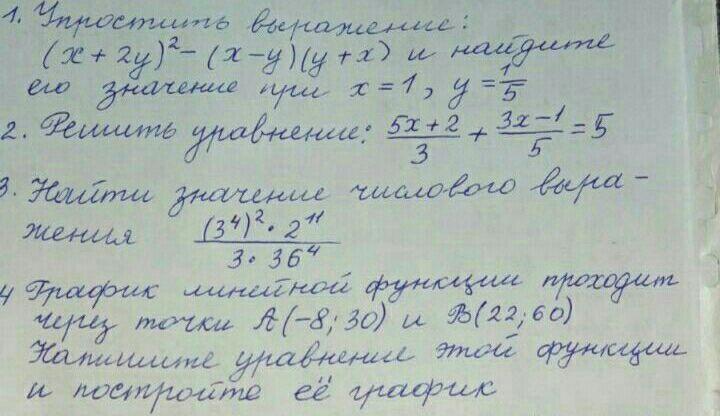 1. Упростить выражение:
(x + 2y)² - (x - y)(y + x) и найдите
его значение при x = 1, y = 1/5
2. Решить уравнение: (5x + 2)/3 + (3x - 1)/5 = 5
3. Найти значение числового выра-
жения (3⁴)² · 2¹¹ / 3 · 36⁴
4 График линейной функции проходит
через точки A(-8; 30) и B(22; 60)
Напишите уравнение этой функции
и постройте её график